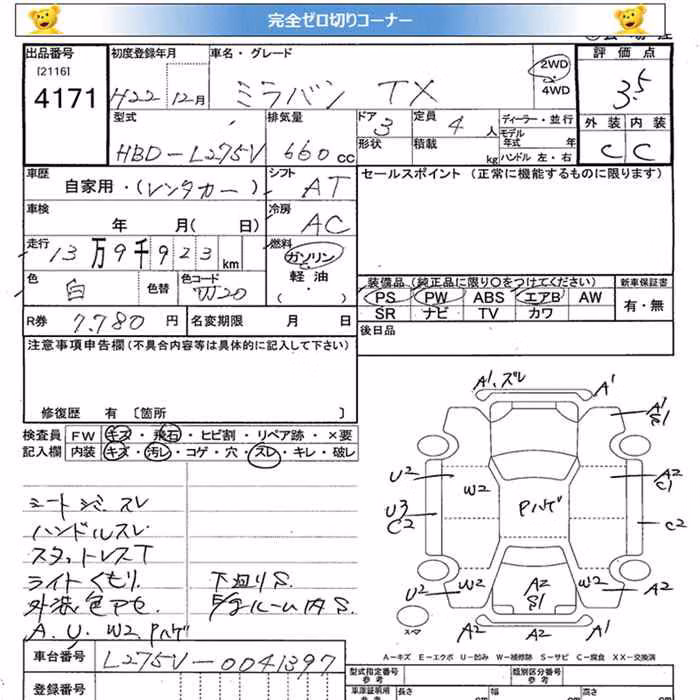 完全ゼロ切りコーナー
出品番号 初度登録年月 車名・グレード 2WD 4WD 評価点
[2116]
4171 H22 12月 ミラバン TX 3.5
型式 排気量 ドア 定員 ディーラー・並行 外装 内装
HBD-L275V 660cc 3 4人 モデル年式 年 C C
形状 積載 kg ハンドル 左・右
車歴 シフト セールスポイント (正常に機能するものに限ります)
自家用・(レンタカー) AT
車検 冷房
年 月( 日) AC
走行 燃料
13万9千923km ガソリン
軽油
( ・ )
色 白 色替 色コード W20
装備品 (純正品に限り○をつけてください) 新車保証書
PS PW ABS エアB AW 有・無
SR ナビ TV カワ
R券 7,780円 名変期限 月 日
後日品
注意事項申告欄(不具合内容等は具体的に記入して下さい)
修復歴 有 〔箇所 〕
検査員 FW キズ・飛石・ヒビ割・リペア跡・×要
記入欄 内装 キズ・汚レ・コゲ・穴・スレ・キレ・破レ
ハンドルスレ
スタットレスT
ライトくもり. 下廻りS.
外装色アセ ルーム内S.
A. U. W2 Pハゲ
A1. スレ A1
A1
S1
U2 W2 Pハゲ A2
C1
U3
C2
C2
U2 W2 A2
S1 W2 A2
A2 A2 A2
スペア
A-キズ E-エクボ U-凹み W-補修跡 S-サビ C-腐食 XX-交換済
車台番号 L275V-0041397
登録番号
型式指定番号 参考 類別区分番号 参考
車庫証明用 参考 長さ cm 幅 cm 高さ cm